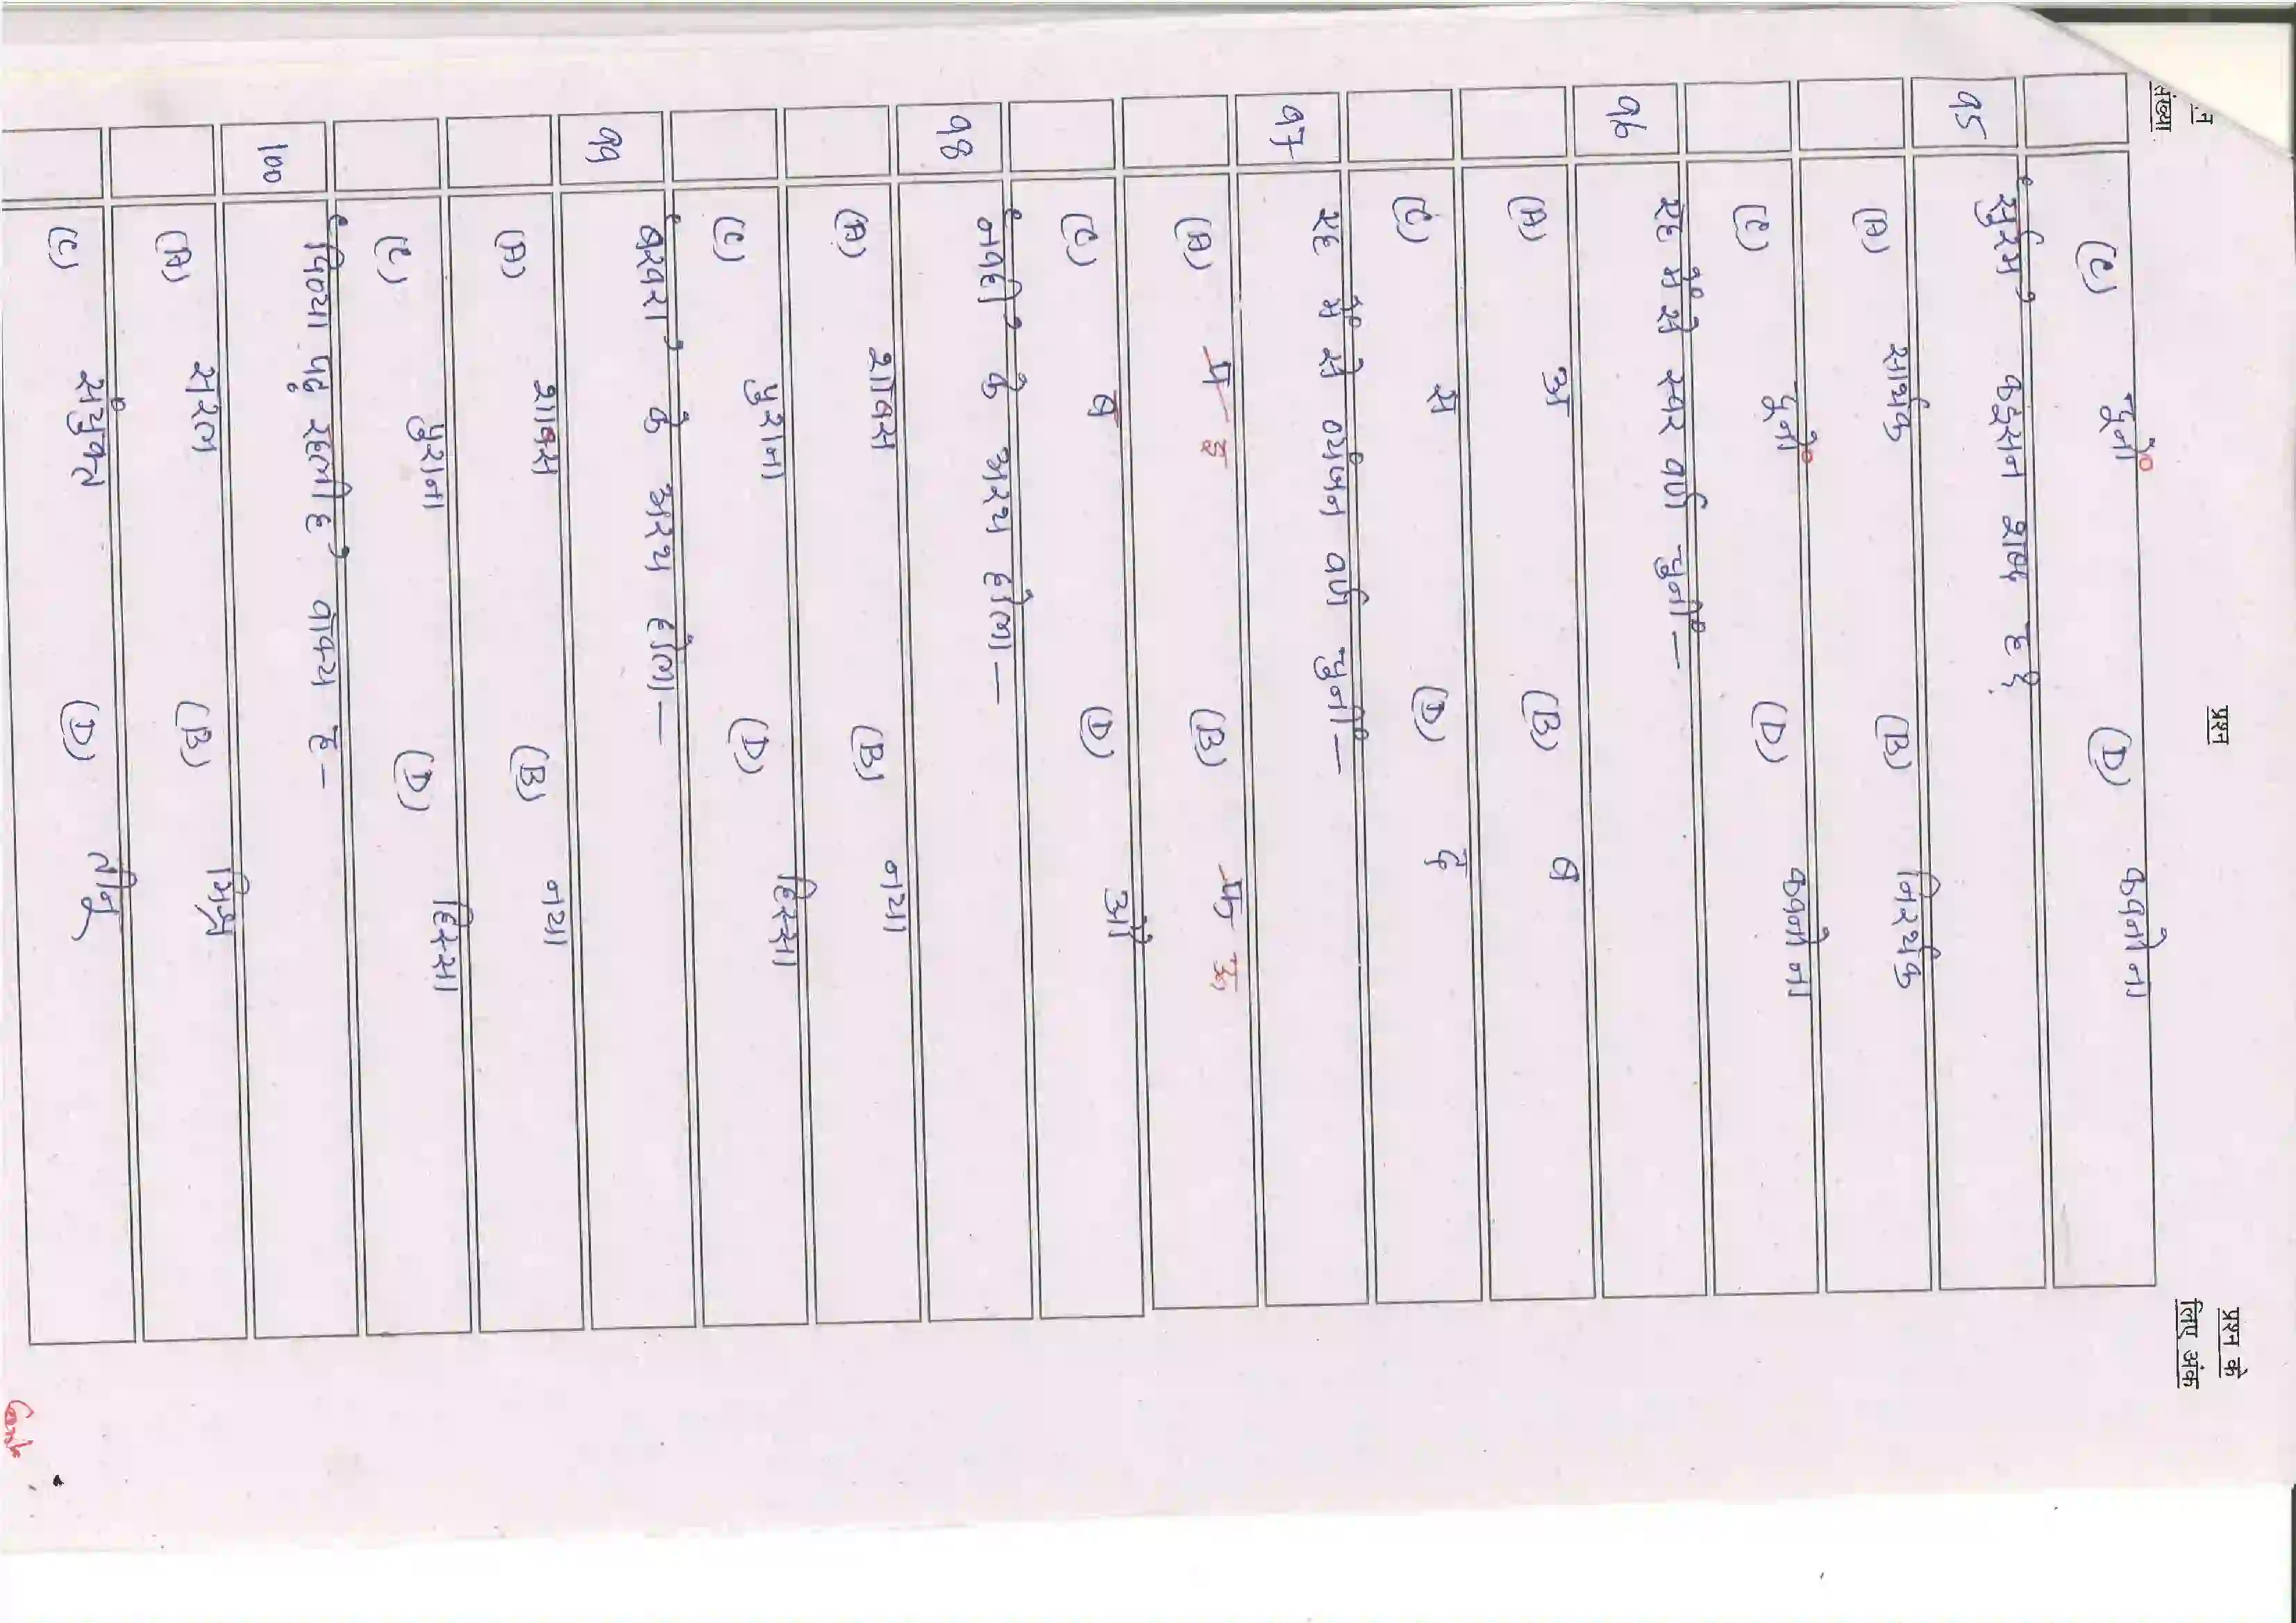 संख्या
प्रश्न
प्रश्न के
लिए अंक
(C) दूनों (D) कवनो ना
95 'सुरुम' कइसन शब्द हऽ
(A) सार्थक (B) निरर्थक
(C) दूनों (D) कवनो ना
96 एह में से स्वर वर्ण चुनीं —
(A) अ (B) ब
(C) स (D) द
97 एह में से व्यंजन वर्ण चुनीं —
(A) इ (B) ऊ
(C) ब (D) ओ
98 'नवही' के अरथ होला —
(A) शाबस (B) नया
(C) पुराना (D) हिस्सा
99 'बखरा' के अरथ होला —
(A) शाबस (B) नया
(C) पुराना (D) हिस्सा
100 'विद्या पढ़ रहल है' वाक्य ह -
(A) सरल (B) मिश्र
(C) संयुक्त (D) तीनू